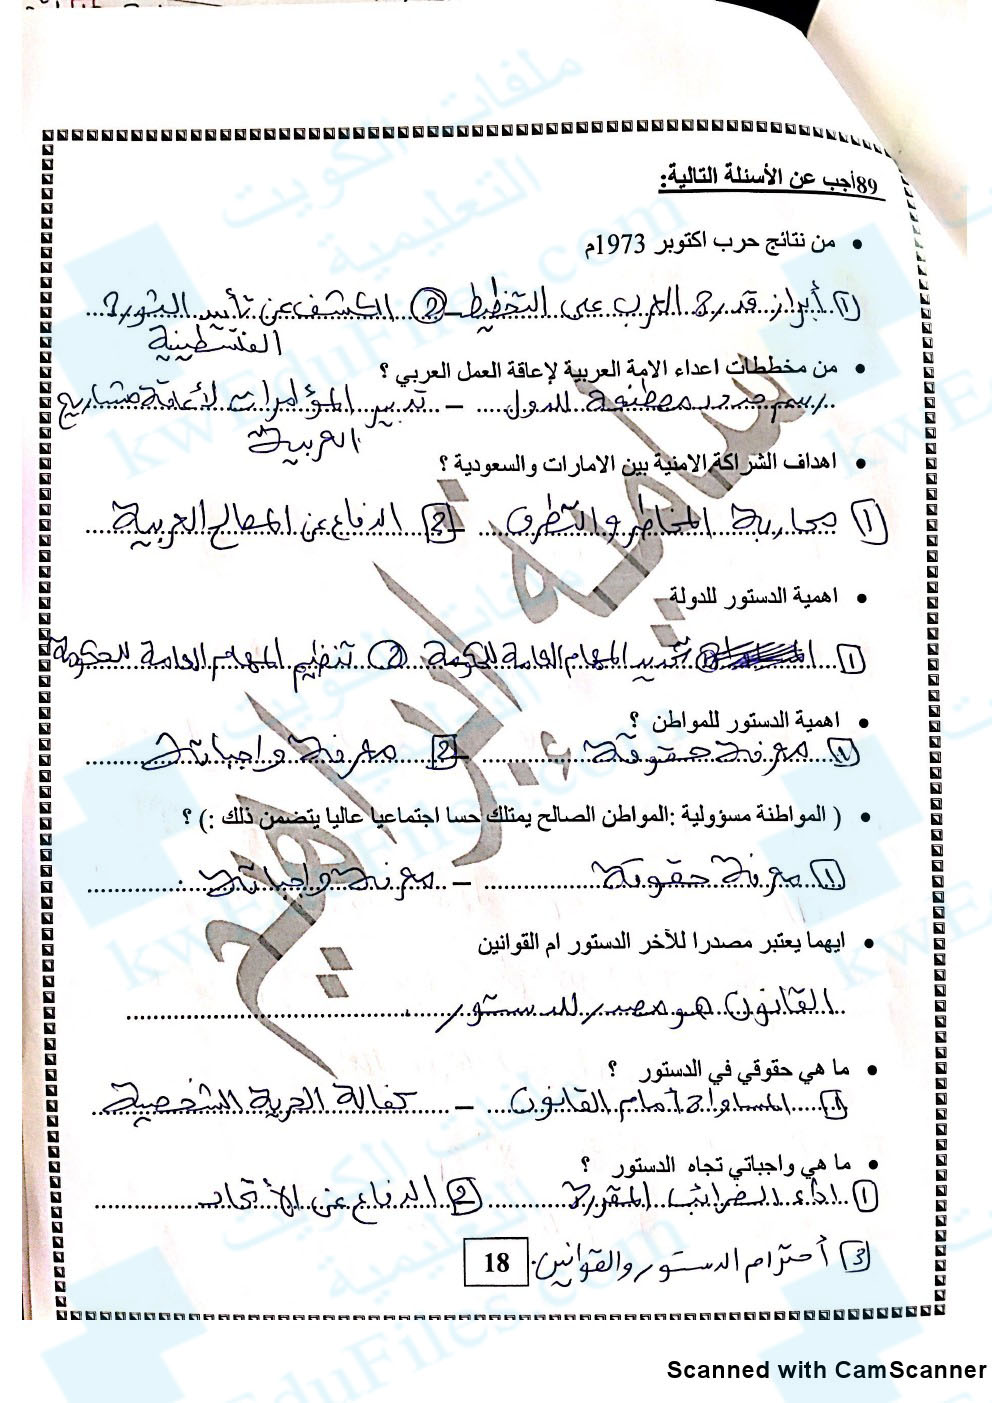 89أجب عن الأسئلة التالية:
• من نتائج حرب اكتوبر 1973م
① أبراز قدرة العرب على التخطيط - ② الكشف عن تأسد الثورة
الفلسطينية
• من مخططات اعداء الامة العربية لإعاقة العمل العربي ؟
رسم حدود مصطنعة للدول - تدبير المؤامرات لأعاقة مشاريع
العربية
• اهداف الشراكة الامنية بين الامارات والسعودية ؟
1 محاربة المخاطر والتطرف - 2 الدفاع عن المصالح العربية
• اهمية الدستور للدولة
1 تحديد المهام العامة للحكومة ② تنظيم المهام العامة للحكومة
• اهمية الدستور للمواطن ؟
1 معرفة حقوقة - 2 معرفة واجباتة
• ( المواطنة مسؤولية :المواطن الصالح يمتلك حسا اجتماعيا عاليا يتضمن ذلك :) ؟
1 معرفة حقوقة - معرفة واجباتة
• ايهما يعتبر مصدرا للآخر الدستور ام القوانين
القانون هو مصدر للدستور
• ما هي حقوقي في الدستور ؟
1 المساواة أمام القانون - كفالة الحرية الشخصية
• ما هي واجباتي تجاه الدستور ؟
1 اداء الضرائب المقررة 2 الدفاع عن الأتحاد
3 أحترام الدستور والقوانين
18
سامية ابراهيم
ملفات الكويت
التعليمية
kwEduFiles.com
Scanned with CamScanner